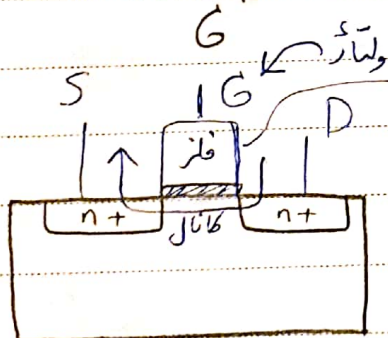 G
ولتاژ
S
G
D
فلز
n+
کانال
n+